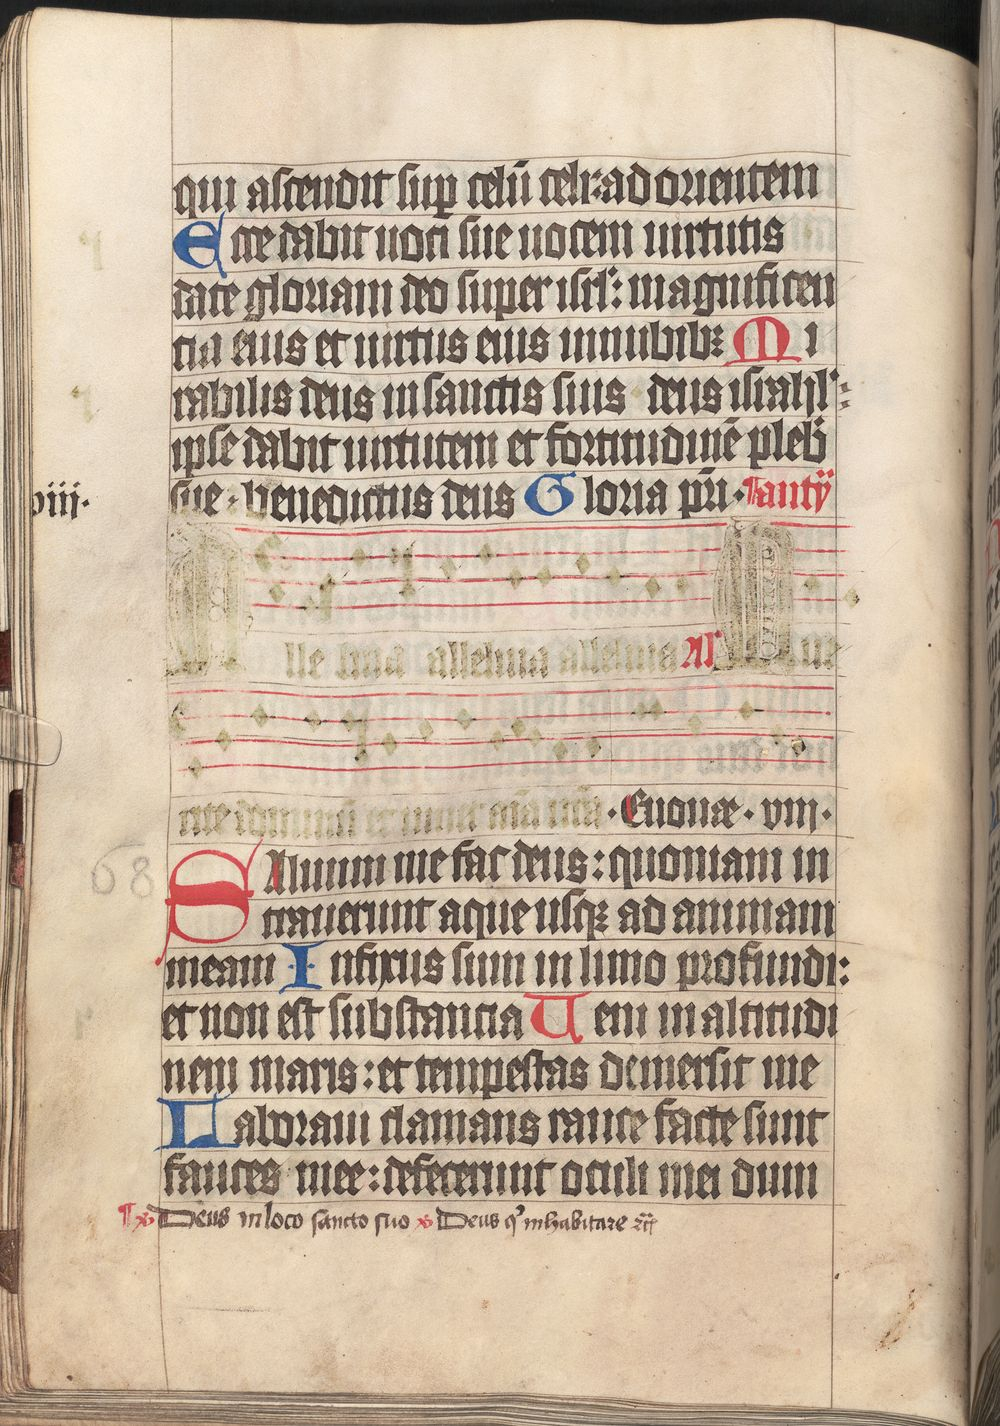 qui ascendit sup celū celi: ad orientem
Ecce dabit uoci sue uocem uirtutis
date gloriam deo super isrl: magnificen
tia eius et uirtus eius in nubibꝫ Mi
rabilis deus in sanctis suis deus israhl
ipse dabit uirtutem et fortitudinē plebi
viij.
sue · benedictus deus Gloria pri · anty
Alle luia alleluia alleluia Al Que
rite dominū et uiuet aīa urā · Euouae · viij ·
68
SAluum me fac deus: quoniam in
trauerunt aque usqꝫ ad animam
meam Infixus sum in limo profundi:
et non est substancia Ueni in altitudi
nem maris: et tempestas demersit me
Laboraui clamans rauce facte sunt
fauces mee: defecerunt oculi mei dum
Deus in loco sancto suo Deus qͥ inhabitare